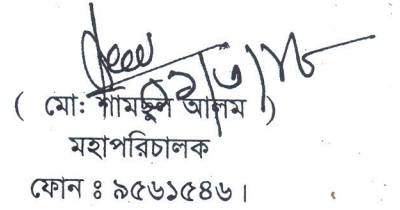 ( মোঃ শামছুল আলম )
মহাপরিচালক
ফোন ঃ ৯৫৬১৫৪৬।